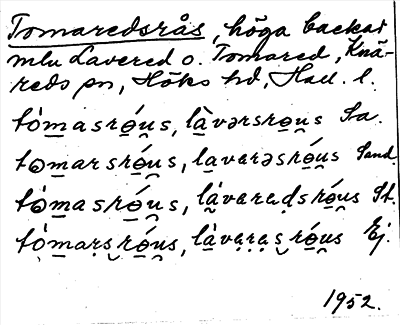 Tomaredsrås, höga backar
mlu Lavered o. Tomared, Knä-
reds sn, Höks hd, Hall. l.
tómasrǫ́us, làvərsrǫus Sa.
tomarsrǫ́us, lavarəsrǫ́us Sand.
tómasrǫ́us, lávaradsrǫus St.
tómaṛṣrǫ́us, làvaṛaṣrǫ́us Ej.
1952.